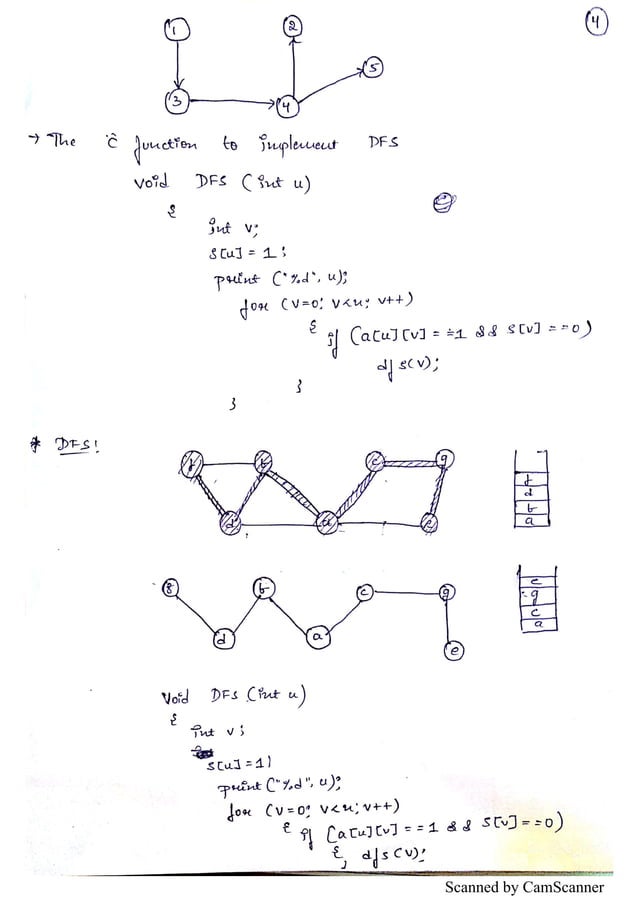 4
1
2
5
3
4
→ The 'C' function to implement DFS
void DFS (int u)
{
int v;
s[u] = 1;
print ("%d", u);
for (v=0; v<n; v++)
{ if (a[u][v] = =1 && s[v] ==0)
dfs(v);
}
}
* DFS!
f b c g
d a e
f
d
b
a
b c g
d a e
e
g
c
a
void DFS (int u)
{
int v;
s[u]=1)
print ("%d", u);
for (v=0; v<n; v++)
{ if (a[u][v] ==1 && s[v]==0)
{, dfs(v);
Scanned by CamScanner